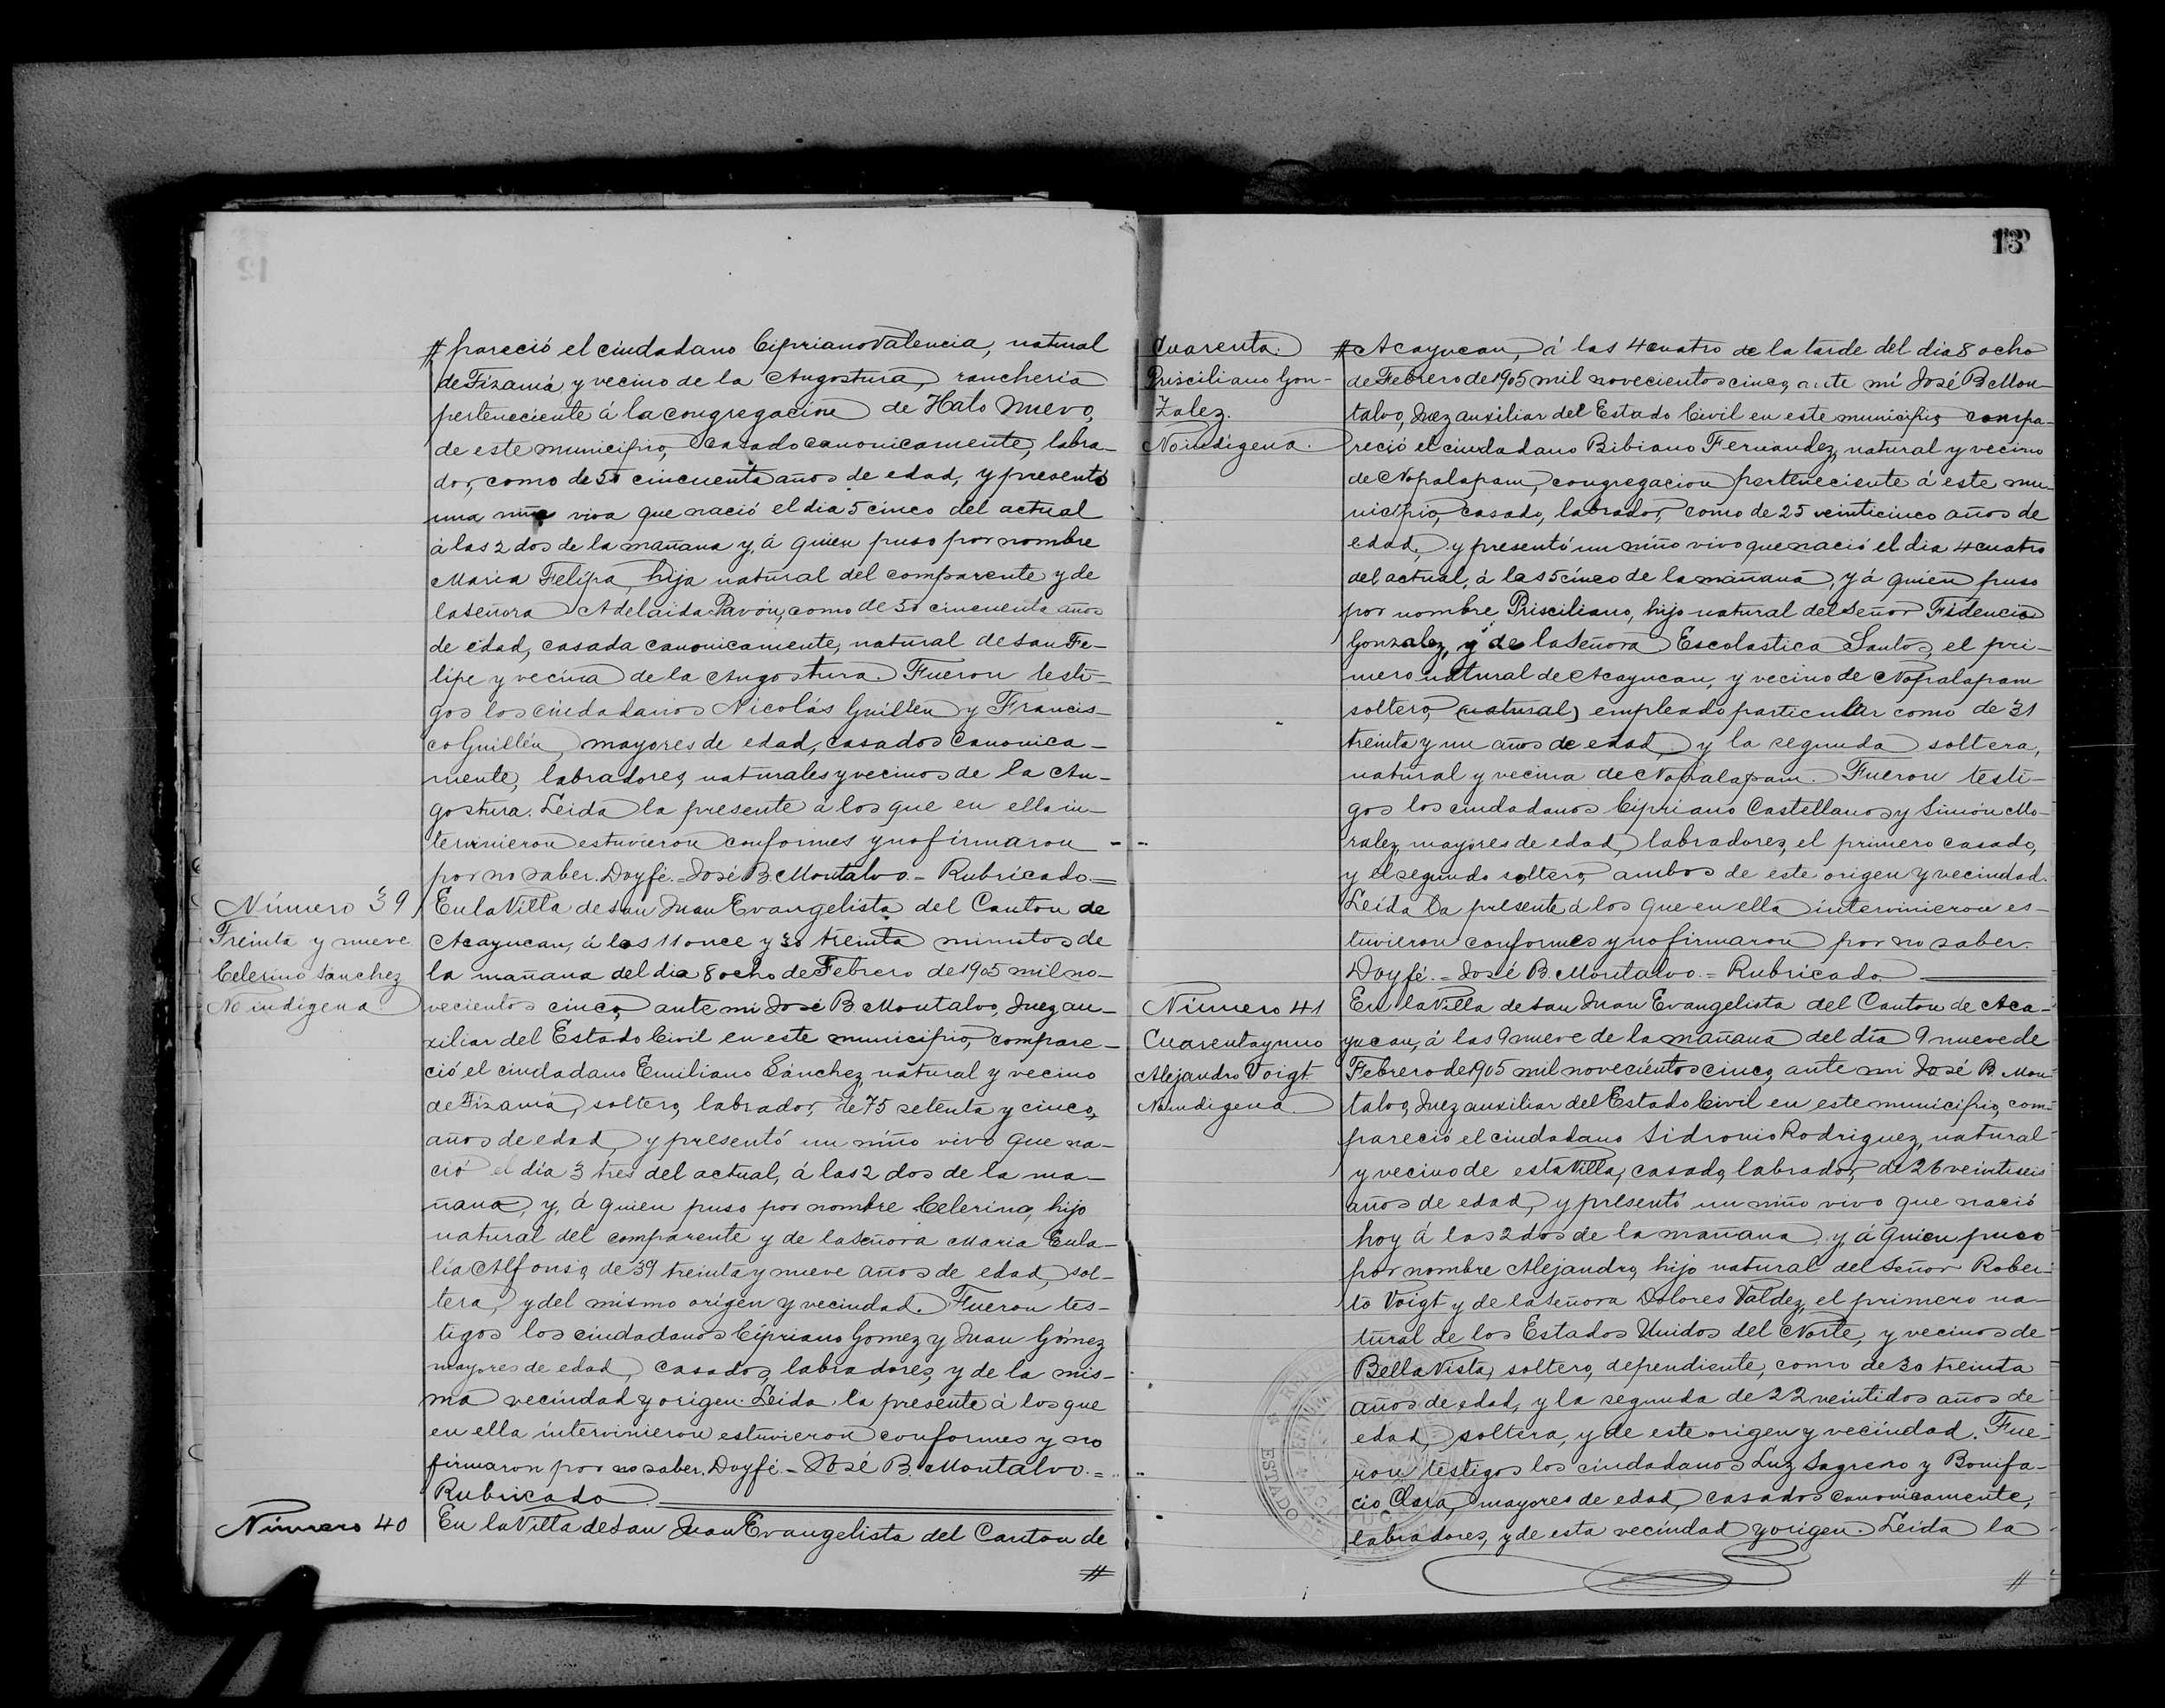 # pareció el ciudadano Cipriano Valencia, natural
de Tizamá y vecino de la Angostura, ranchería
perteneciente á la congregacion de Hato Nuevo,
de este municipio, casado canonicamente, labra-
dor, como de 50 cincuenta años de edad, y presentó
una niña viva que nació el dia 5 cinco del actual
á las 2 dos de la mañana y, á quien puso por nombre
Maria Felipa, hija natural del comparente y de
la señora Adelaida Pavón, como de 50 cincuenta años
de edad, casada canonicamente, natural de San Fe-
lipe y vecina de la Angostura. Fueron testi-
gos los ciudadanos Nicolás Guillén y Francis-
co Guillén, mayores de edad, casados canonica-
mente, labradores, naturales y vecinos de la An-
gostura. Leida la presente á los que en ella in-
tervinieron estuvieron conformes y no firmaron
por no saber. Doy fé. = José B. Montalvo. - Rubricado. =
Número 39
Treinta y nueve
Celerino Sanchez
No indígena
En la Villa de San Juan Evangelista del Canton de
Acayucan, á las 11 once y 30 treinta minutos de
la mañana del dia 8 ocho de Febrero de 1905 mil no-
vecientos cinco, ante mi José B. Montalvo, Juez au-
xiliar del Estado Civil en este municipio, compare-
ció el ciudadano Emiliano Sánchez, natural y vecino
de Tizamá, soltero, labrador, de 75 setenta y cinco,
años de edad, y presentó un niño vivo que na-
ció el día 3 tres del actual, á las 2 dos de la ma-
ñana, y, á quien puso por nombre Celerino, hijo
natural del comparente y de la señora Maria Eula-
lia Alfonso, de 39 treinta y nueve años de edad, sol-
tera, y del mismo orígen y vecindad. Fueron tes-
tigos los ciudadanos Cipriano Gomez y Juan Gómez
mayores de edad, casados, labradores, y de la mis-
ma vecindad y origen. Leida la presente á los que
en ella intervinieron estuvieron conformes y no
firmaron por no saber. Doy fé. - José B. Montalvo. =
Rubricado.
Número 40
En la Villa de San Juan Evangelista del Canton de
#
13
Cuarenta.
Prisciliano Gon-
zalez.
No indígena.
# Acayucan, á las 4 cuatro de la tarde del dia 8 ocho
de Febrero de 1905 mil novecientos cinco, ante mí José B. Mon-
talvo, Juez auxiliar del Estado Civil en este municipio, compa-
reció el ciudadano Bibiano Fernandez, natural y vecino
de Nopalapam, congregacion perteneciente á este mu-
nicipio, casado, labrador, como de 25 veinticinco años de
edad, y presentó un niño vivo que nació el dia 4 cuatro
del actual, á las 5 cinco de la mañana, y á quien puso
por nombre Prisciliano, hijo natural del Señor Fidencio
Gonzalez, y de la Señora Escolastica Santos, el pri-
mero natural de Acayucan, y vecino de Nopalapam
soltero, (natural) empleado particular como de 31
treinta y un años de edad, y la segunda soltera,
natural y vecina de Nopalapam. Fueron testi-
gos los ciudadanos Cipriano Castellanos y Simón Mo-
ralez, mayores de edad, labradores, el primero casado,
y el segundo soltero, ambos de este origen y vecindad.
Leída la presente á los que en ella intervinieron es-
tuvieron conformes y no firmaron por no saber.
Doy fé. = José B. Montalvo. = Rubricado
Número 41
Cuarenta y uno
Alejandro Voigt
No indígena.
En la Villa de San Juan Evangelista del Canton de Aca-
yucan, á las 9 nueve de la mañana del día 9 nueve de
Febrero de 1905 mil novecientos cinco, ante mi José B. Mon-
talvo, Juez auxiliar del Estado Civil en este municipio, com-
pareció el ciudadano Sidronio Rodriguez, natural
y vecino de esta Villa, casado, labrador, de 26 veintiseis
años de edad, y presentó un niño vivo que nació
hoy á las 2 dos de la mañana y, á quien puso
por nombre Alejandro, hijo natural del Señor Rober-
to Voigt y de la Señora Dolores Valdez, el primero na-
tural de los Estados Unidos del Norte, y vecino de
Bella Vista, soltero, dependiente, como de 30 treinta
años de edad, y la segunda de 22 veintidos años de
edad, soltera, y de este origen y vecindad. Fue-
ron testigos los ciudadanos Luz Sagrero y Bonifa-
cio Clara, mayores de edad, casados canonicamente,
labradores, y de esta vecindad y origen. Leida la
#